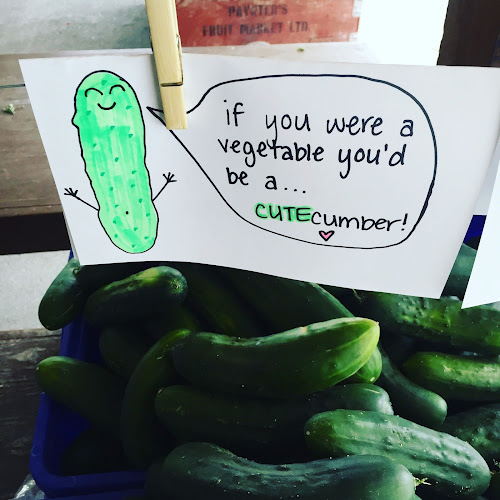 PAYNTER'S
FRUIT MARKET LTD.
if you were a
vegetable you'd
be a...
CUTEcumber!